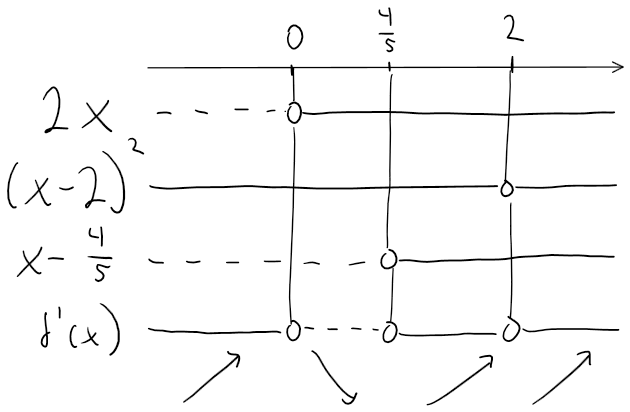 0 4/5 2
2x
(x-2)²
x- 4/5
f'(x)